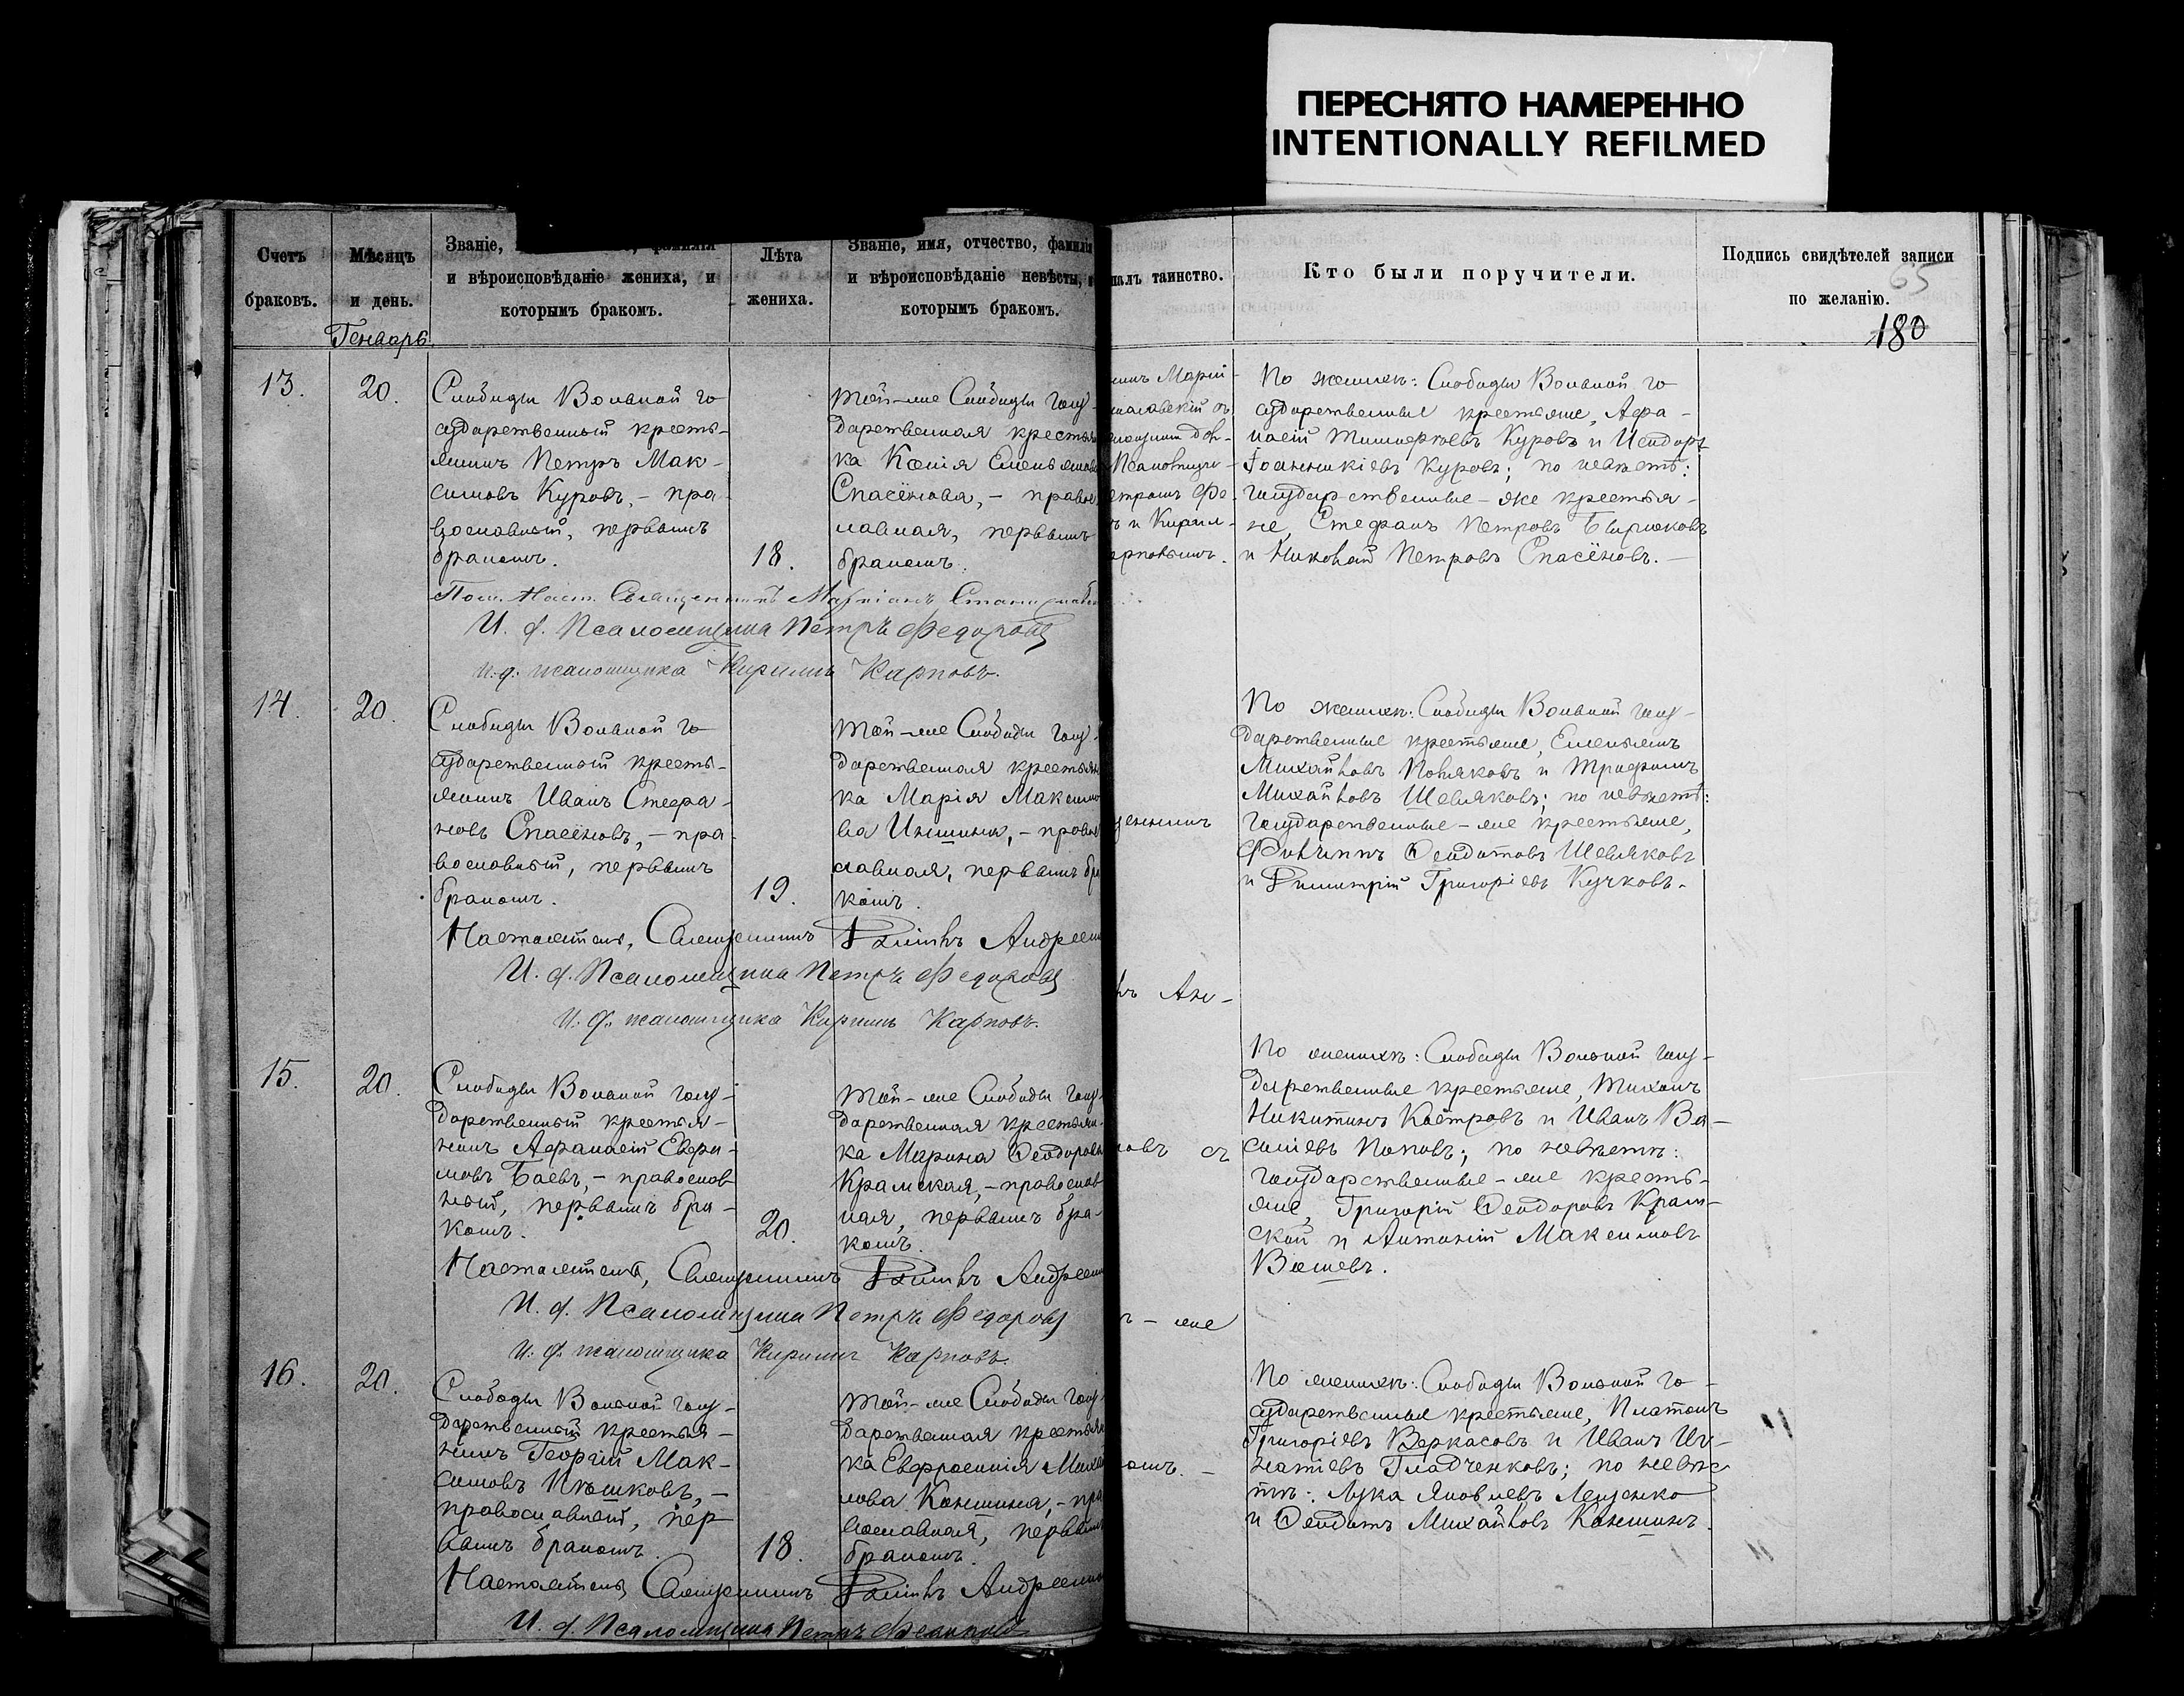 ПЕРЕСНЯТО НАМЕРЕННО
INTENTIONALLY REFILMED
Счетъ
браковъ.
Мѣсяцъ
и день.
Генварь
Званіе,
и вѣроисповѣданіе жениха, и
которымъ бракомъ.
Лѣта
жениха.
Званіе, имя, отчество, фамилія
и вѣроисповѣданіе невѣсты, и
которымъ бракомъ.
таинство.
Кто были поручители.
Подпись свидѣтелей записи
по желанію.
65
180
13.
20.
Слободы Вольной го
сударственный кресть-
янинъ Петръ Мак-
симовъ Куровъ, - пра-
вославный, первымъ
бракомъ.
18.
Той-же Слободы госу-
дарственная крестьян
ка Ксенія Емельянова
Спасёнова, - правос
лавная, первымъ
бракомъ.
Марій-
Псаломщи-
етромъ Ѳе-
ъ и Кирил-
арповымъ.
По женихѣ: Слободы Вольной го-
сударственные крестьяне, Аѳа-
насій Тимоѳеевъ Куровъ и Исидоръ
Іоанникіевъ Куровъ; по невѣстѣ:
государственные-же крестья-
не, Стефанъ Петровъ Бирюковъ
и Николай Петровъ Спасёновъ.-
Священникъ Маріанъ
И. д. Псаломщика Петръ Ѳедоровъ
И. д. псаломщика Кириллъ Карповъ.
14.
20.
Слободы Вольной го
сударственный кресть-
янинъ Иванъ Стефа-
новъ Спасёновъ, - пра-
вославный, первымъ
бракомъ.
19.
Той-же Слободы госу-
дарственная крестьян
ка Марія Максимо
ва Иншина, - правос
славная, первымъ бра
комъ.
По женихѣ: Слободы Вольной госу-
дарственные крестьяне, Емельянъ
Михайловъ Поляковъ и Трофимъ
Михайловъ Шевляковъ; по невѣстѣ:
государственные-же крестьяне,
Филиппъ Ѳеодотовъ Шевляковъ
и Димитрій Григоріевъ Кучковъ.
Настоятель, Священникъ Андреенк
И. д. Псаломщика Петръ Ѳедоровъ
И. д. псаломщика Кириллъ Карповъ.
15.
20.
Слободы Вольной госу-
дарственный крестья-
нинъ Аѳанасій Ефи-
мовъ Баевъ, - православ
ный, первымъ бра-
комъ.
20.
Той-же Слободы госу-
дарственная крестьян-
ка Марина Ѳеодорова
Крамская, - православ
ная, первымъ бра-
комъ.
По женихѣ: Слободы Вольной госу-
дарственные крестьяне, Тихонъ
Никитинъ Костровъ и Иванъ Ва-
силіевъ Поповъ; по невѣстѣ:
государственные-же кресть-
яне, Григорій Ѳеодоровъ Крам-
ской и Антоній Максимовъ
Настоятель, Священникъ Андреенк
И. д. Псаломщика Петръ Ѳедоровъ
И. д. псаломщика Кириллъ Карповъ.
16.
20.
Слободы Вольной госу-
дарственный крестья-
нинъ Георгій Мак-
симовъ Пѣшковъ, -
православный, пер
вымъ бракомъ.
18.
Той-же Слободы госу-
дарственная крестьян
ка Евфросинія Михай
лова Коншина, - пра
вославная, первымъ
бракомъ.
По женихѣ: Слободы Вольной го-
сударственные крестьяне, Платонъ
Григоріевъ Веркасовъ и Иванъ Иг-
натіевъ Гладченковъ; по невѣс
тѣ: Лука Яковлевъ Лещенко
и Ѳеодотъ Михайловъ Коншинъ.
Настоятель, Священникъ Андреенк
И. д. Псаломщика Петръ Ѳедоровъ